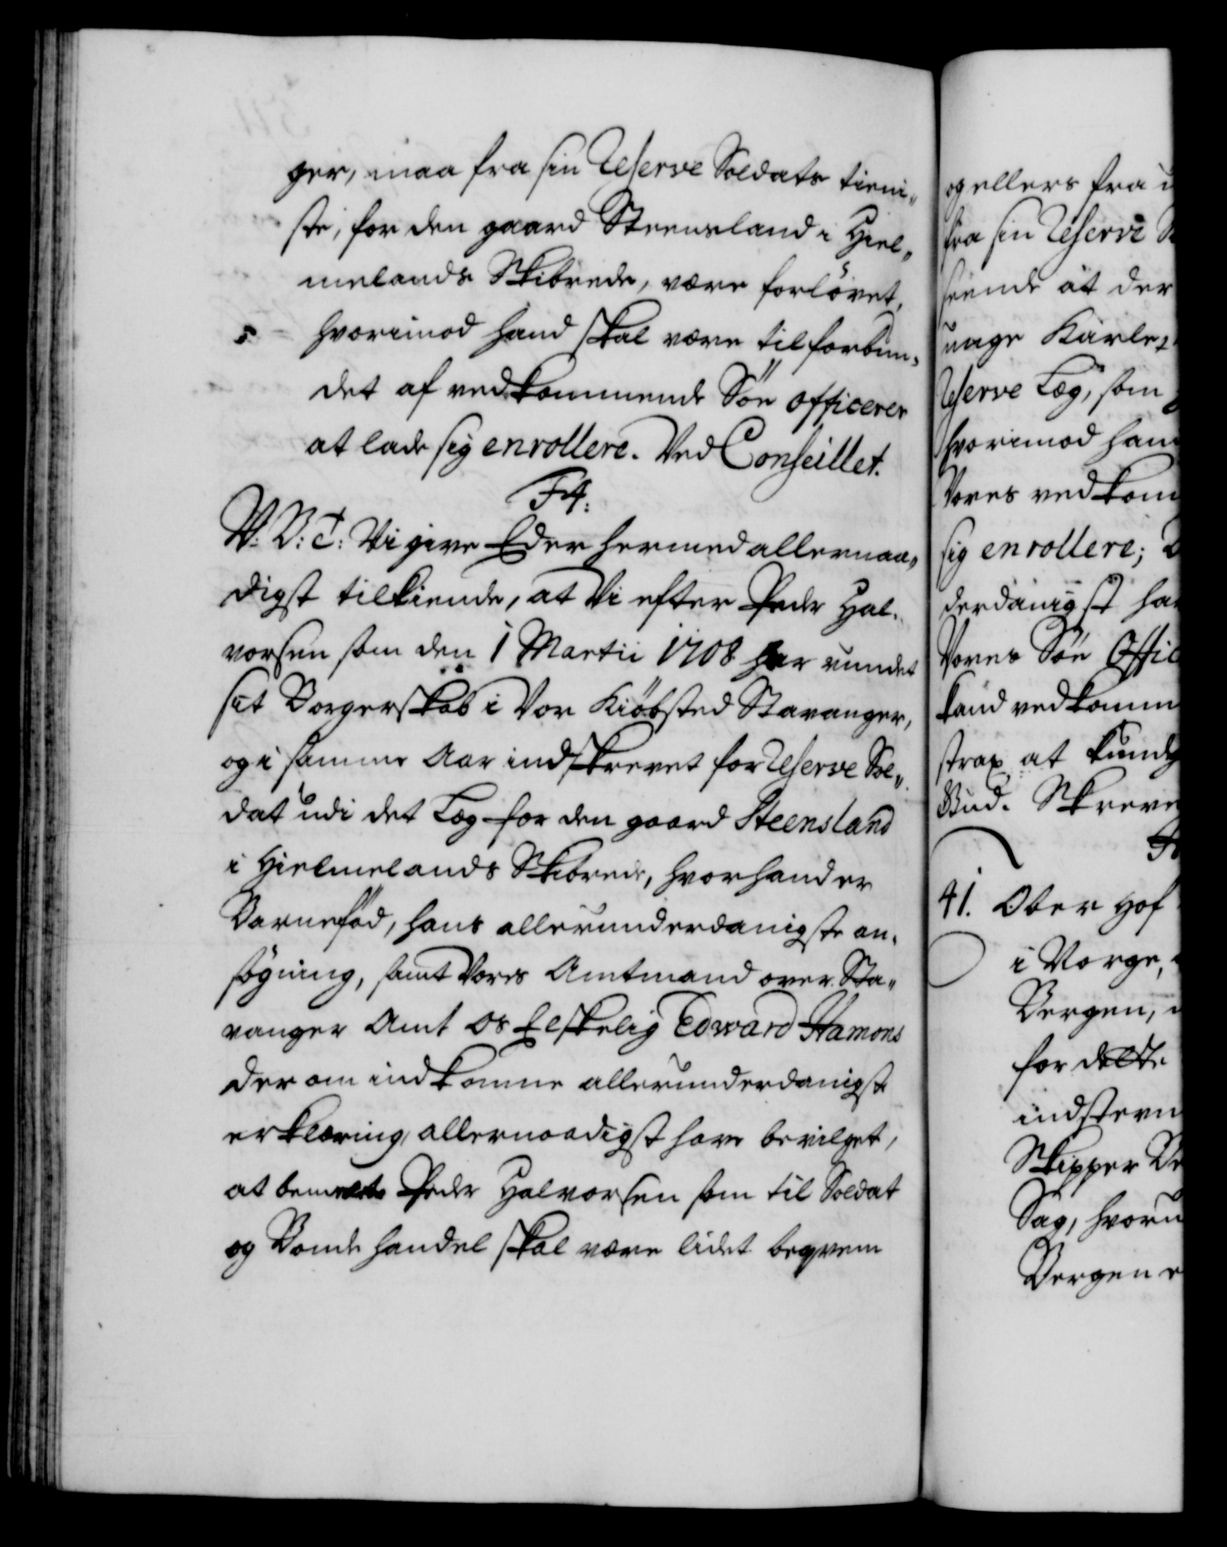 ger, maa fra sin Reserve Soldats tieni-
ste, for den gaard Steensland i Hiel-
melands Skibrede, være forlövet,
hvorimod hand skal være tilforbun-
det af vedkommende Söe Officerer
at lade sig enrollere. Ved Conseillet.
F4.
V. V: t: Vi give Eder hermed allernaa-
digst tilkiende, at Vi efter Peder Hal-
vorsen som den 1 Martii 1708 har vundet
sit Borgerskab i Vor Kiöbsted Stavanger,
og i samme Aar indskrevet for Reserve Sol-
dat udi det Læg for den gaard Steensland
i Hielmelands Skibrede, hvor hand er
Barnefød, hans allerunderdanigste an-
søgning, samt Vores Amtmand over Sta-
vanger Amt Os Elskelig Edward Hamons
der om indkomne allerunderdanigste
erklæring, allernaadigst have bevilget,
at bemelte Peder Halvorsen som til Soldat
og Bonde handel skal være lidet beqvem
og ellers fra
fra sin Reserve
seende at der
unge Karle
Reserve Læg, som
hvorimod han
Vores vedkom
sig enrollere;
derdanigst ha
Vores Söe Offi
kand vedkomm
strax at kundg
Bud. Skreve
41. Ober Hof
i Norge,
Bergen,
for
indstevn
Skipper
Sag, hvoru
Bergen